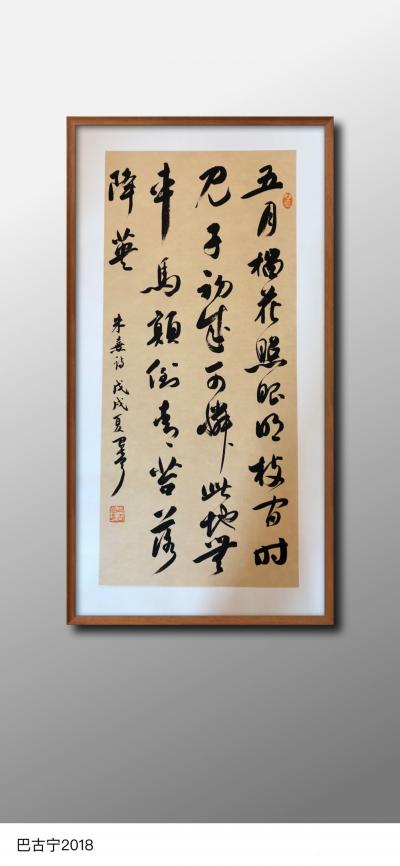 五月榴花照眼明枝间时
见子初成可憐此地無
车馬顛倒青苔落
降英
朱熹诗 戊戌夏
巴古宁2018